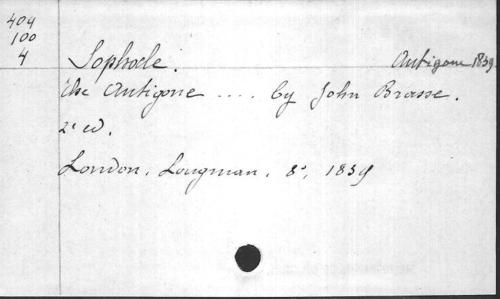 404
100
4
Sophocle. Antigone 1839
The Antigone .... by John Brasse.
2e ed.
London, Longman, 8°, 1839